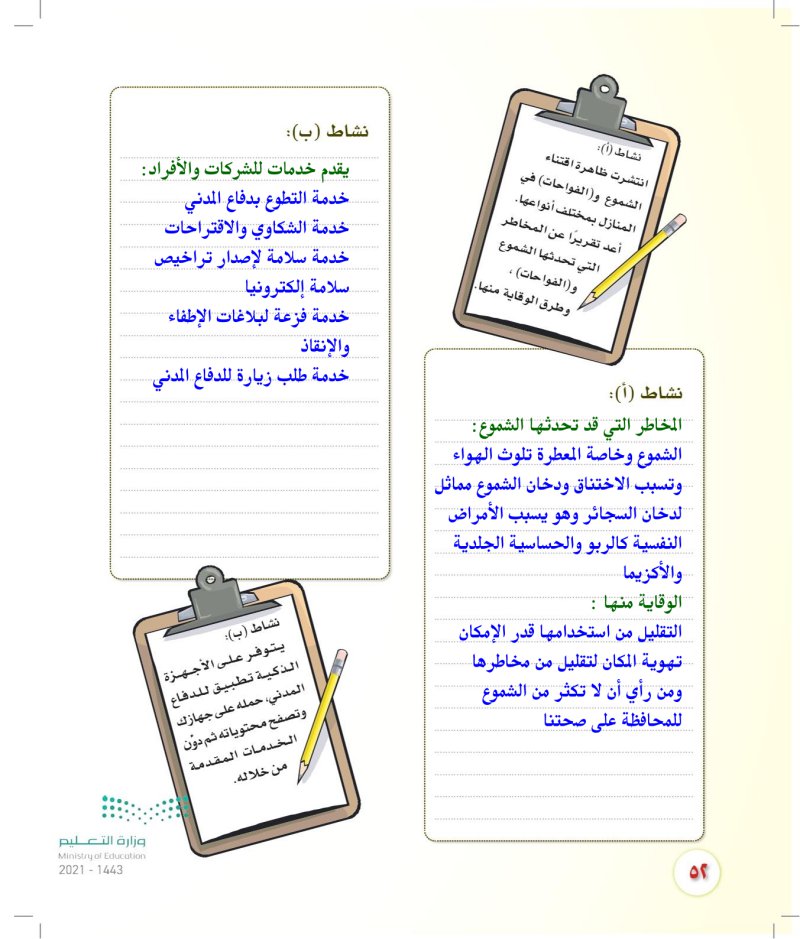 نشاط (أ):
انتشرت ظاهرة اقتناء
الشموع و(الفواحات) في
المنازل بمختلف أنواعها.
أعد تقريرًا عن المخاطر
التي تحدثها الشموع
و(الفواحات) ،
وطرق الوقاية منها.
نشاط (أ):
المخاطر التي قد تحدثها الشموع:
الشموع وخاصة المعطرة تلوث الهواء
وتسبب الاختناق ودخان الشموع مماثل
لدخان السجائر وهو يسبب الأمراض
النفسية كالربو والحساسية الجلدية
والأكزيما
الوقاية منها :
التقليل من استخدامها قدر الإمكان
تهوية المكان لتقليل من مخاطرها
ومن رأي أن لا تكثر من الشموع
للمحافظة على صحتنا
نشاط (ب):
يقدم خدمات للشركات والأفراد:
خدمة التطوع بدفاع المدني
خدمة الشكاوي والاقتراحات
خدمة سلامة لإصدار تراخيص
سلامة إلكترونيا
خدمة فزعة لبلاغات الإطفاء
والإنقاذ
خدمة طلب زيارة للدفاع المدني
نشاط (ب):
يتوفر على الأجهزة
الذكية تطبيق للدفاع
المدني، حمله على جهازك
وتصفح محتوياته ثم دوّن
الخدمات المقدمة
من خلاله.
وزارة التعـــليم
Ministry of Education
2021 - 1443
٥٢